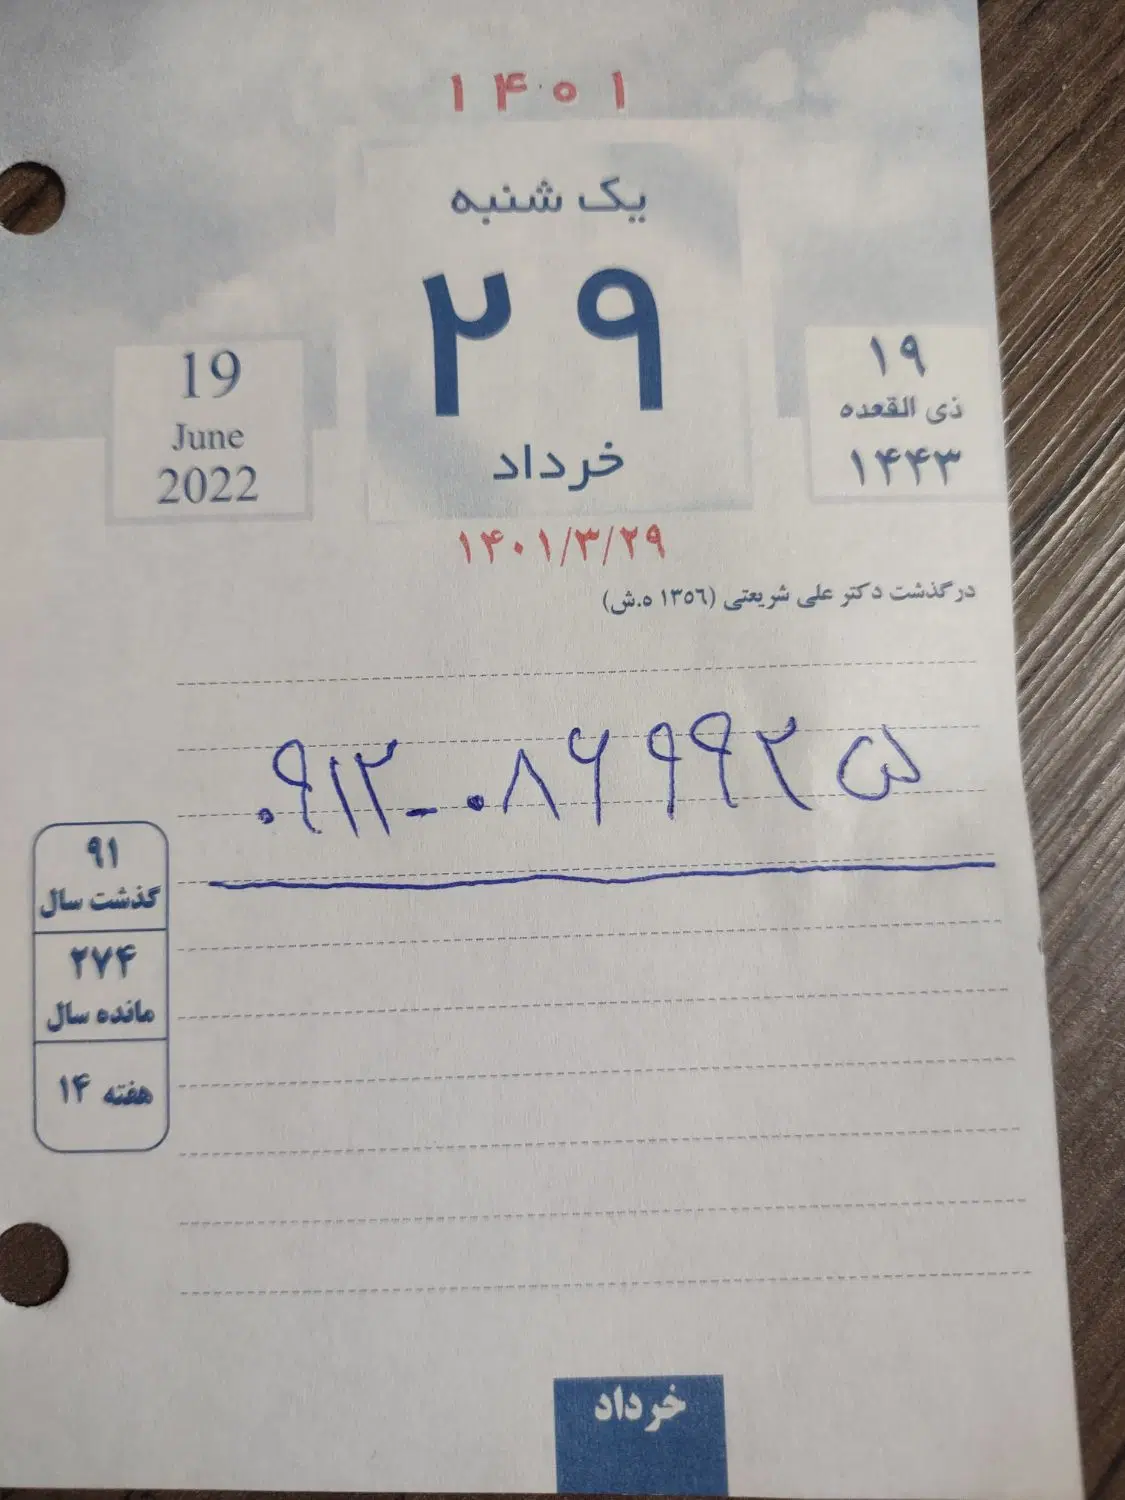 ۱۴۰۱
یک شنبه
۲۹
خرداد
۱۴۰۱/۳/۲۹
19
June
2022
۱۹
ذی القعده
۱۴۴۳
درگذشت دکتر علی شریعتی (۱۳۵٦ ه.ش)
۰۹۱۲-۰۸۶۹۹۲۵
۹۱
گذشت سال
۲۷۴
مانده سال
هفته ۱۴
خرداد